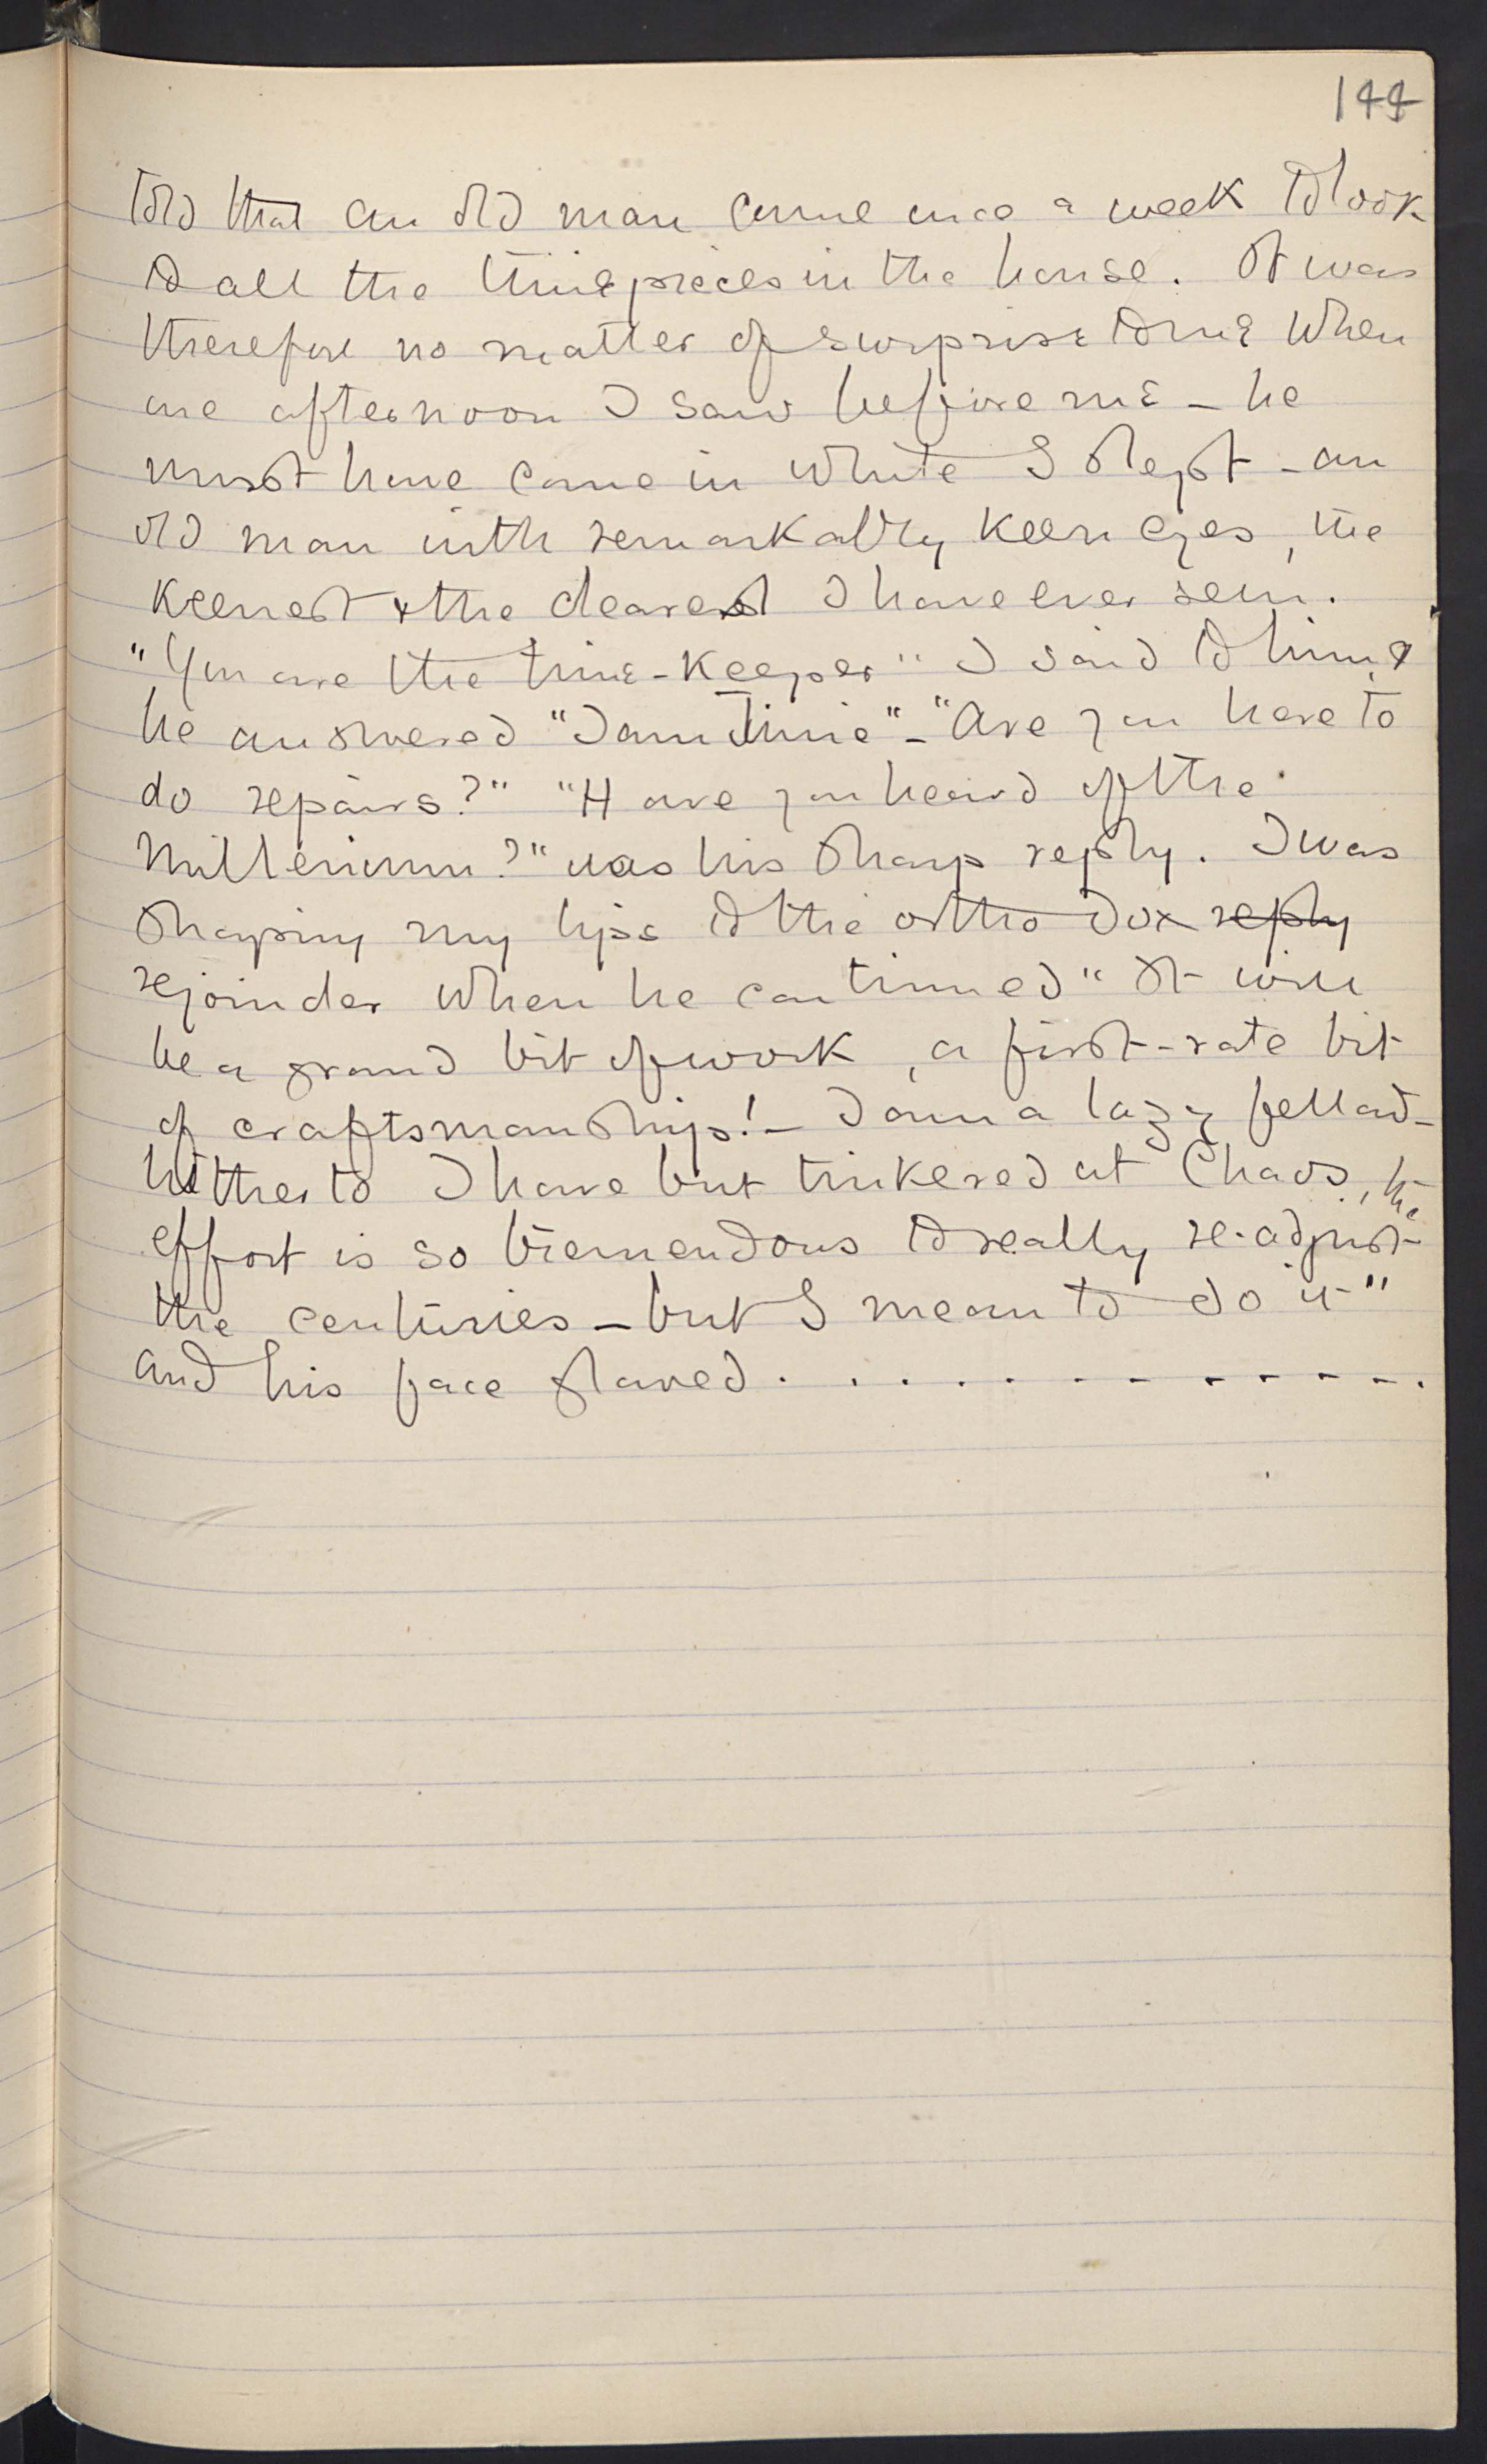 144
told that an old man came once a week to look
to all the timepieces in the house. It was
therefore no matter of surprise to me when
one afternoon I saw before me – he
must have come in while I slept – an
old man with remarkably keen eyes, the
keenest & the clearest I have ever seen.
"You are the time-keeper" I said to him, &
he answered "I am Time" – "Are you here to
do repairs?" "Have you heard of the
Millenium?" was his sharp reply. I was
shaping my lips to the orthodox reply
rejoinder when he continued "It will
be a grand bit of work, a first-rate bit
of craftsmanship! – I am a lazy fellow –
hitherto I have but tinkered at Chaos, the
effort is so tremendous to really re-adjust
the centuries – but I mean to do it"
and his face glared . . . . . . . . . . . .